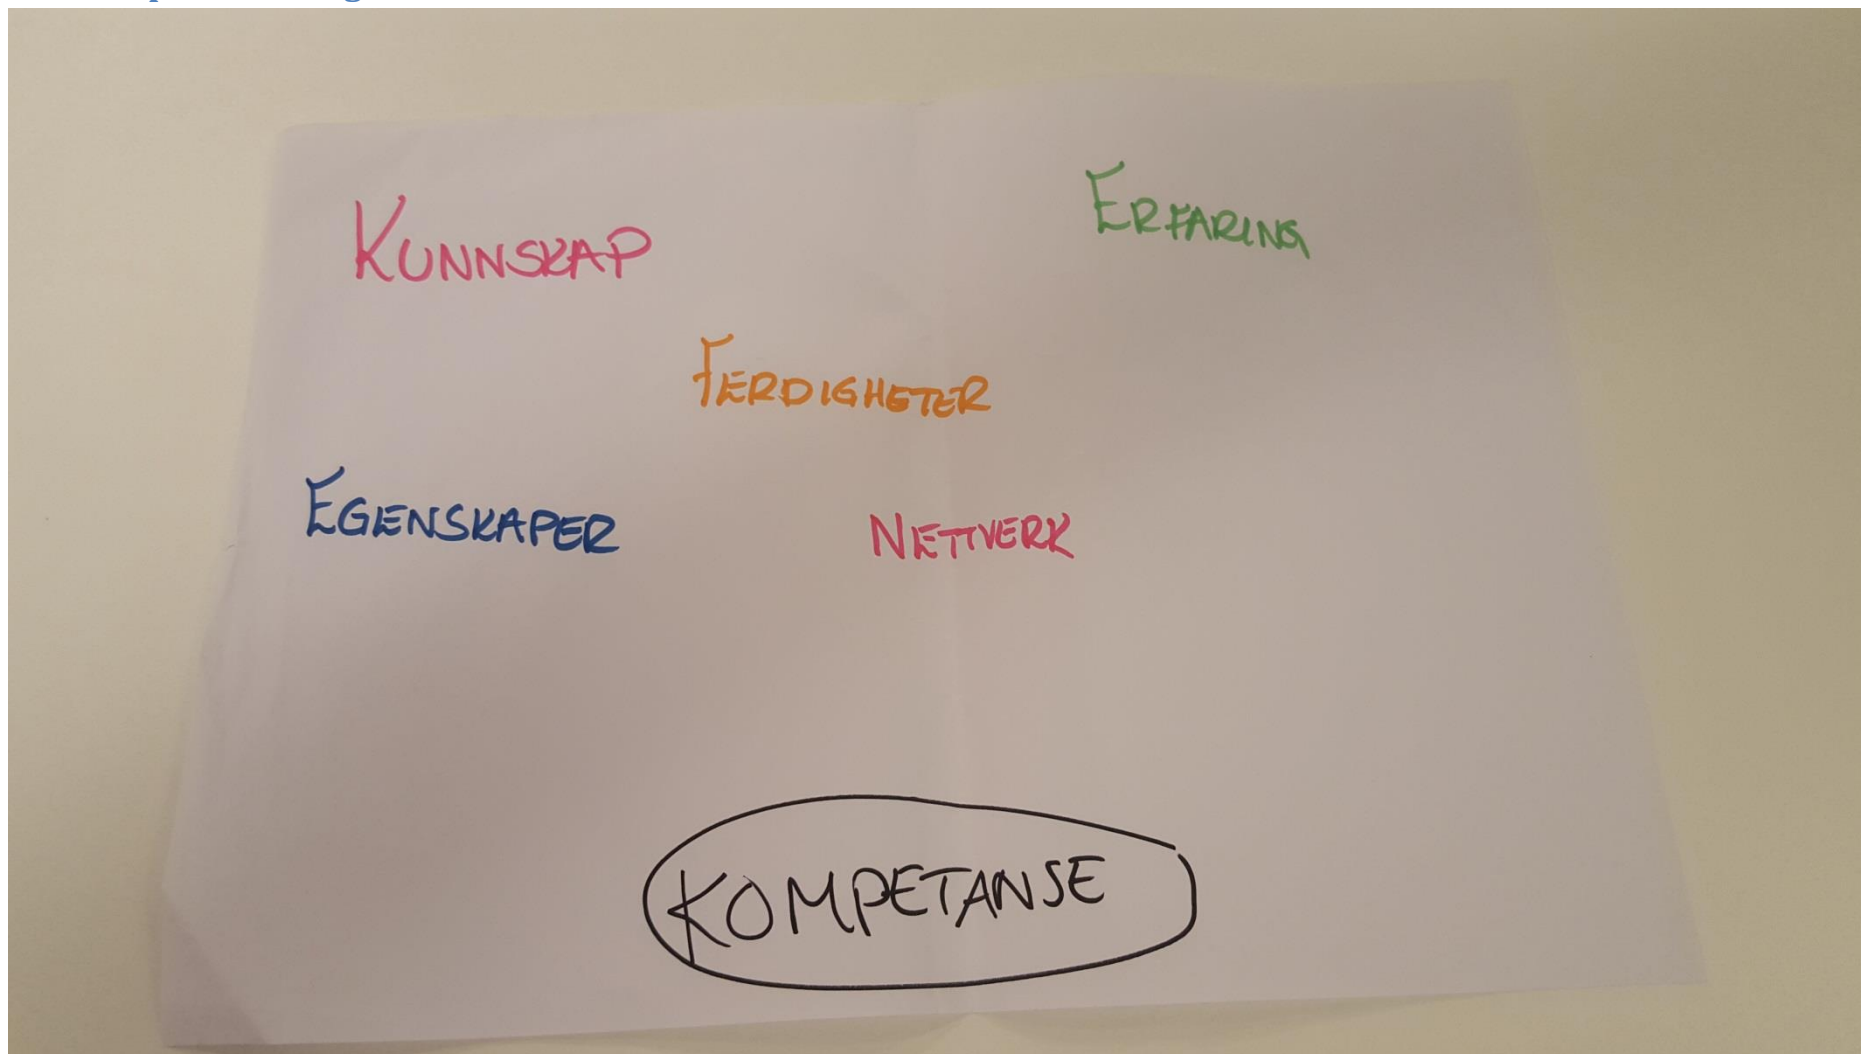 KUNNSKAP
ERFARING
FERDIGHETER
EGENSKAPER
NETTVERK
KOMPETANSE